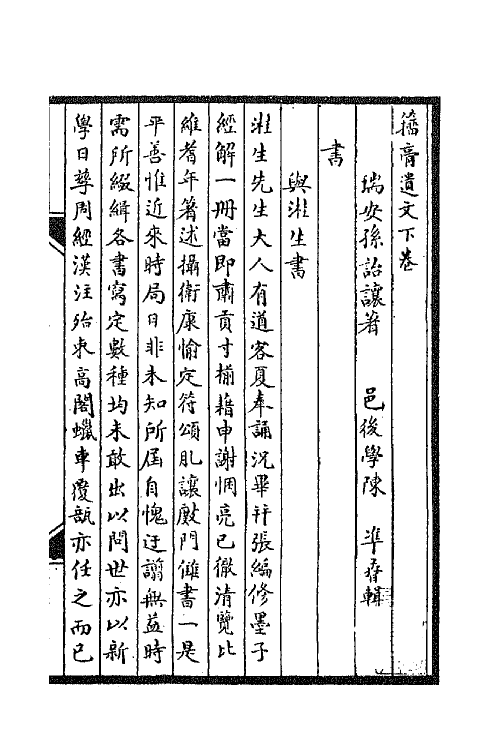 籀膏遺文下卷
瑞安孫詒讓著　邑後學陳　準彝輯
書
與湘生書
湘生先生大人有道客夏奉誦沉畢幷張編修墨子
經解一冊當即肅貢寸楮藉申謝悃亮已徹清覽比
維耆年箸述攝衛康愉定符頌肊讓敿門讎書一是
平善惟近來時局日非未知所屆自愧迂謭無益時
需所綴緝各書寫定數種均未敢出以問世亦以新
學日孳周經漢注殆束高閣蠟車覆瓿亦任之而已